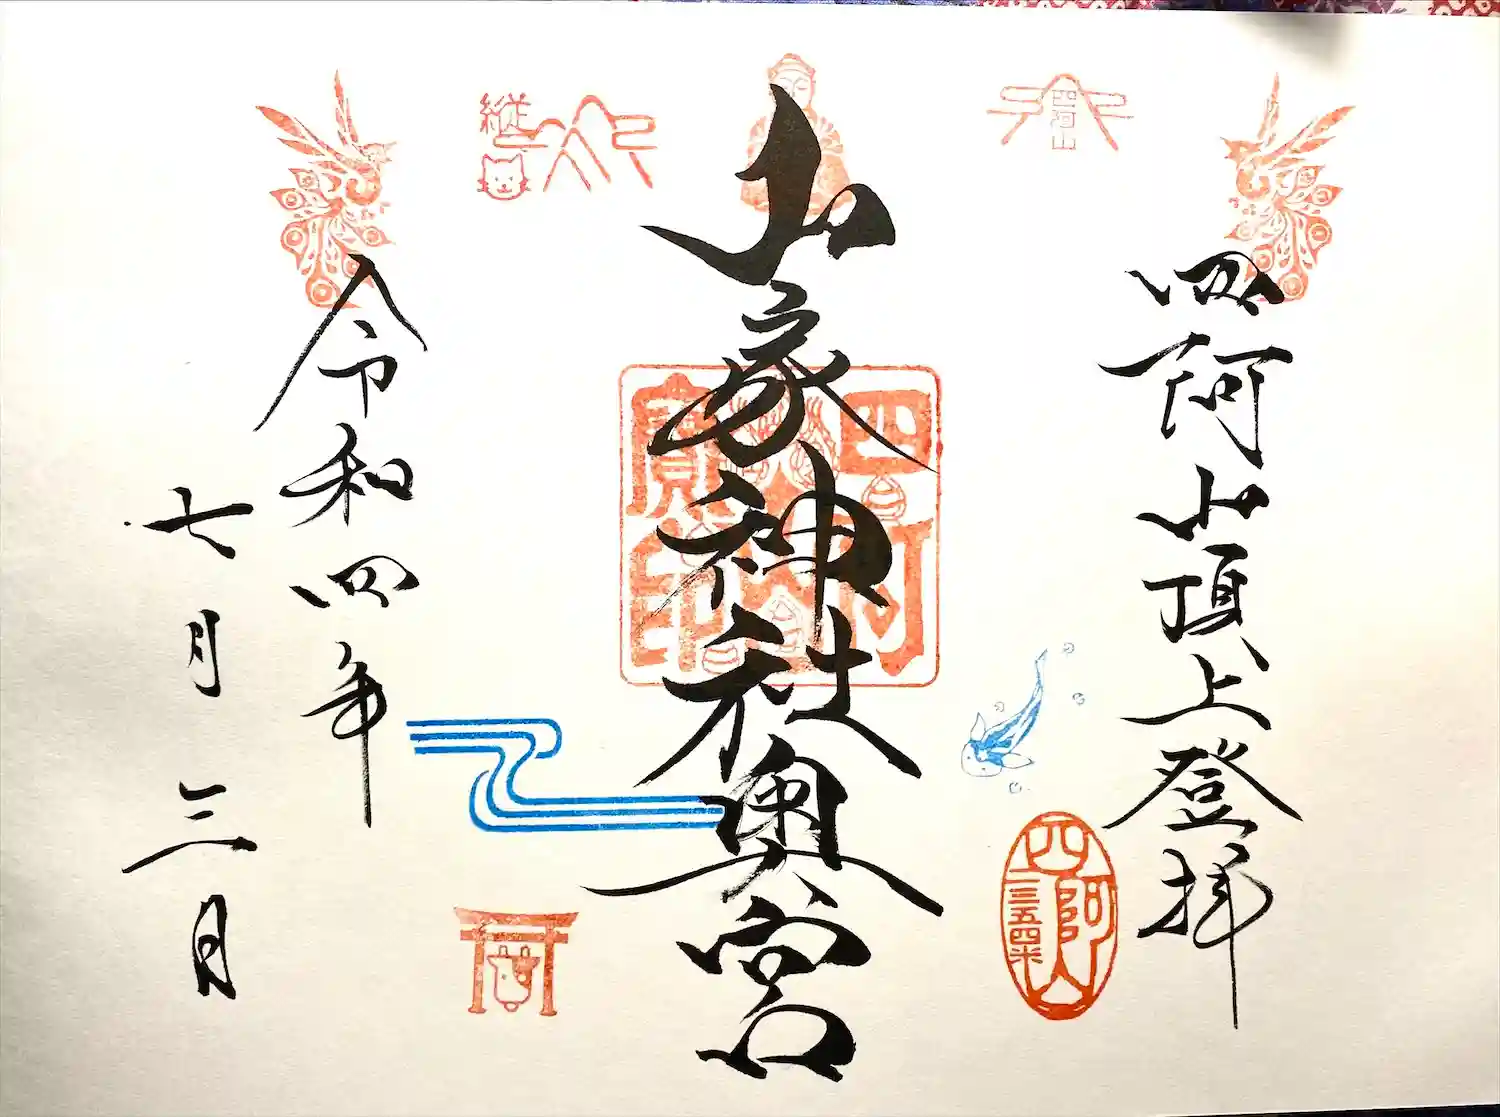 四阿山頂上登拝
四阿山
四阿山
二三五四米
山家神社奥宮
四阿山
寶印
縦
令和四年
七月三日